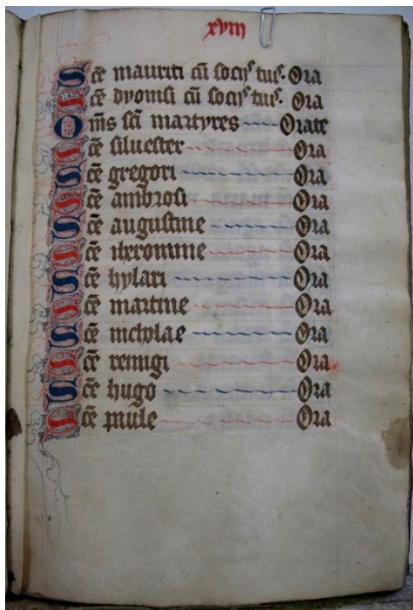 xviij
Sc̄e mauriti cū socijs tuis. Ora
Sc̄e dyonisi cū socijs tuis. Ora
Om̄s sc̄i martyres Orate
Sc̄e siluester Ora
Sc̄e gregori Ora
Sc̄e ambrosi Ora
Sc̄e augustine Ora
Sc̄e iheronime Ora
Sc̄e hylari Ora
Sc̄e martine Ora
Sc̄e nicholae Ora
Sc̄e remigi Ora
Sc̄e hugo Ora
Sc̄e Ora